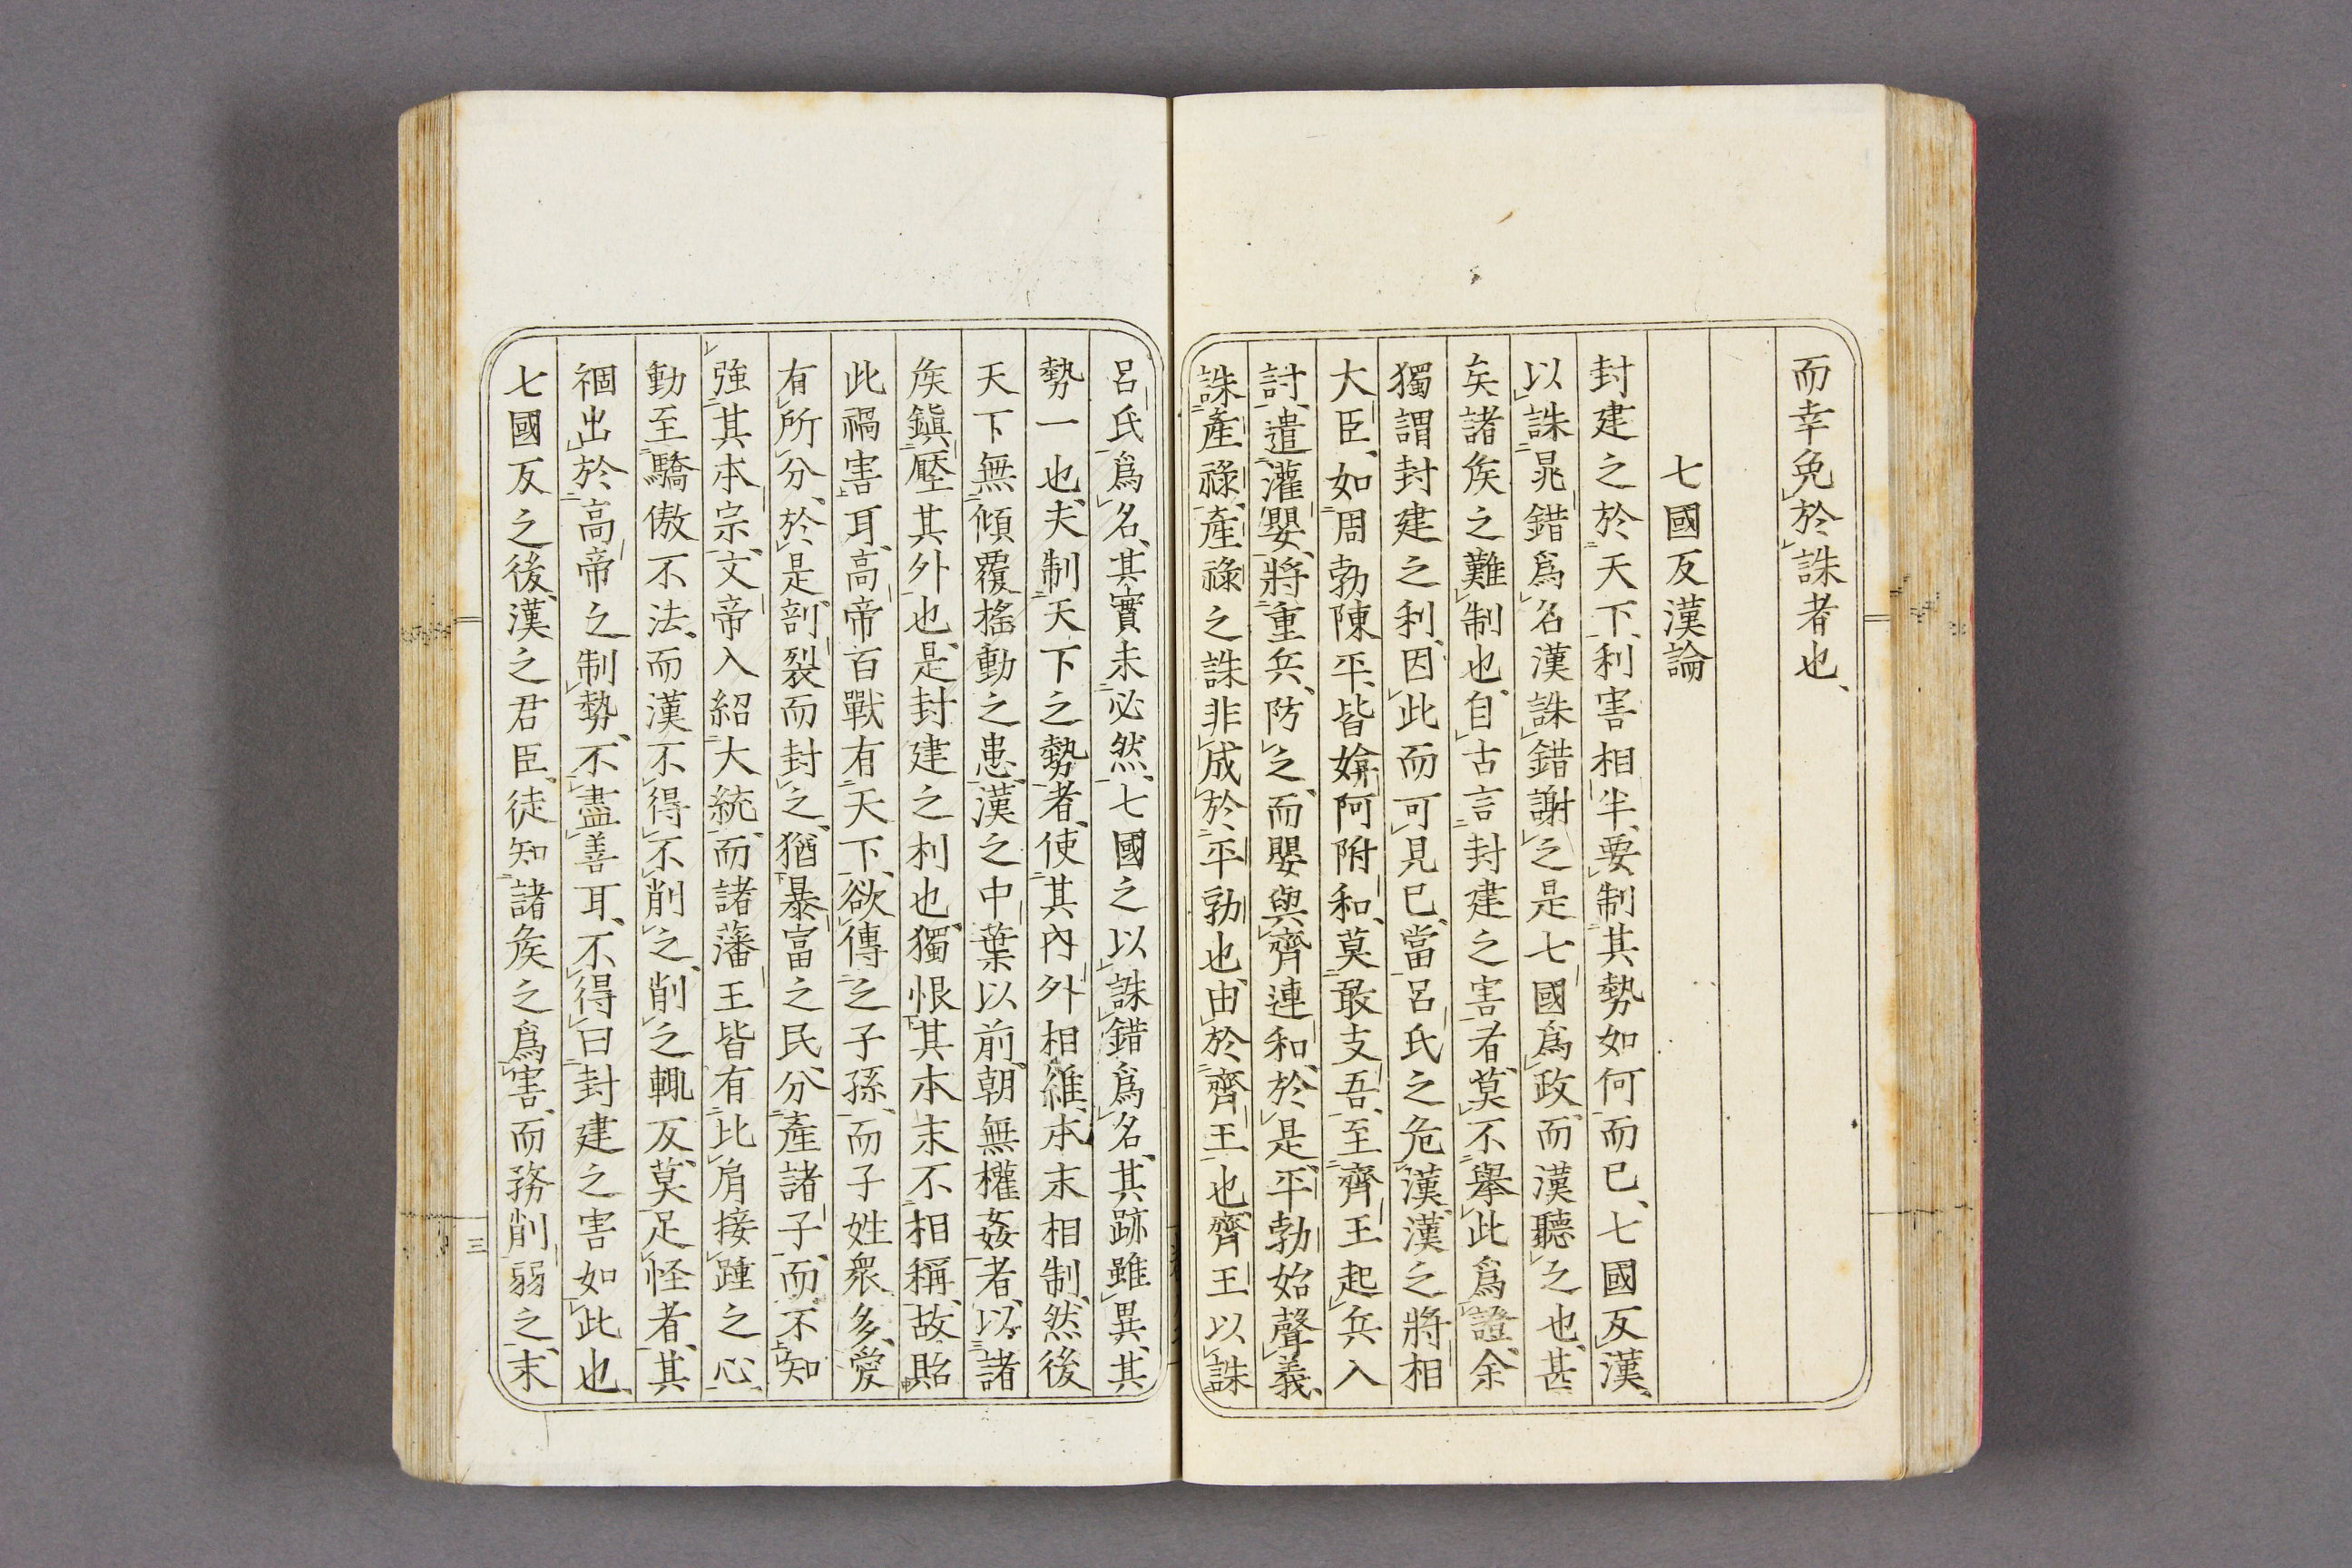 而幸免於誅者也、
七國反漢論
封建之於天下、利害相半、要制其勢如何而已、七國反漢、
以誅鼂錯爲名漢誅錯謝之是七國爲政、而漢聽之也、甚
矣諸矦之難制也、自古言封建之害者、莫不擧此爲證、余
獨謂封建之利、因此而可見已、當呂氏之危漢、漢之將相
大臣、如周勃陳平、皆媕阿附和、莫敢支吾、至齊王起兵入
討、遣灌嬰、將重兵、防之、而嬰與齊連和、於是、平勃始聲義、
誅產祿、產祿之誅非成於平勃也、由於齊王也、齊王以誅
呂氏爲名、其實未必然、七國之以誅錯爲名、其跡雖異、其
勢一也、夫制天下之勢者、使其內外相維、本末相制、然後
天下無傾覆搖動之患、漢之中葉以前、朝無權姦者、以諸
矦鎭壓其外也、是封建之利也、獨恨其本末不相稱、故貽
此禍害耳、高帝百戰有天下、欲傳之子孫、而子姓衆多、愛
有所分、於是、剖裂而封之、猶暴富之民、分產諸子、而不知
強其本宗、文帝入紹大統、而諸藩王皆有比肩接踵之心、
動至驕傲不法、而漢不得不削之、削之輒反、莫足怪者、其
禍出於高帝之制勢、不盡善耳、不得曰封建之害如此也、
七國反之後、漢之君臣、徒知諸矦之爲害、而務削弱之、末
三